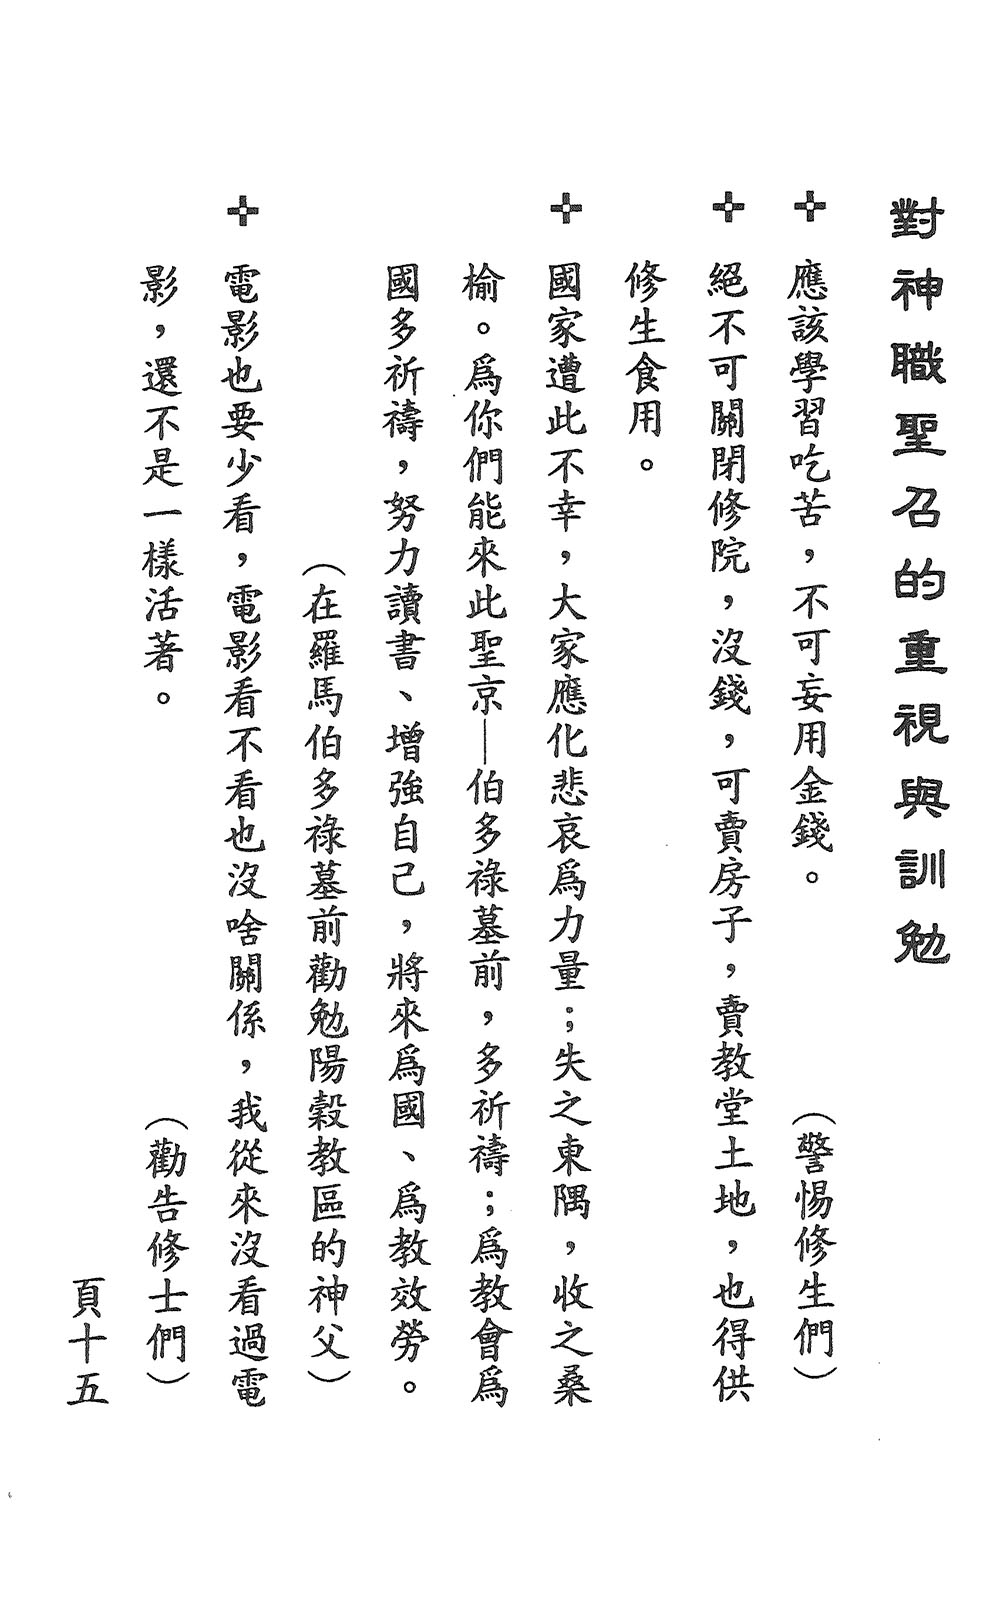 對神職聖召的重視與訓勉
✜ 應該學習吃苦，不可妄用金錢。 （警惕修生們）
✜ 絕不可關閉修院，沒錢，可賣房子，賣教堂土地，也得供
修生食用。
✜ 國家遭此不幸，大家應化悲哀爲力量；失之東隅，收之桑
榆。爲你們能來此聖京—伯多祿墓前，多祈禱；爲教會爲
國多祈禱，努力讀書、增強自己，將來爲國、爲教效勞。
（在羅馬伯多祿墓前勸勉陽穀教區的神父）
✜ 電影也要少看，電影看不看也沒啥關係，我從來沒看過電
影，還不是一樣活著。 （勸告修士們）
頁十五